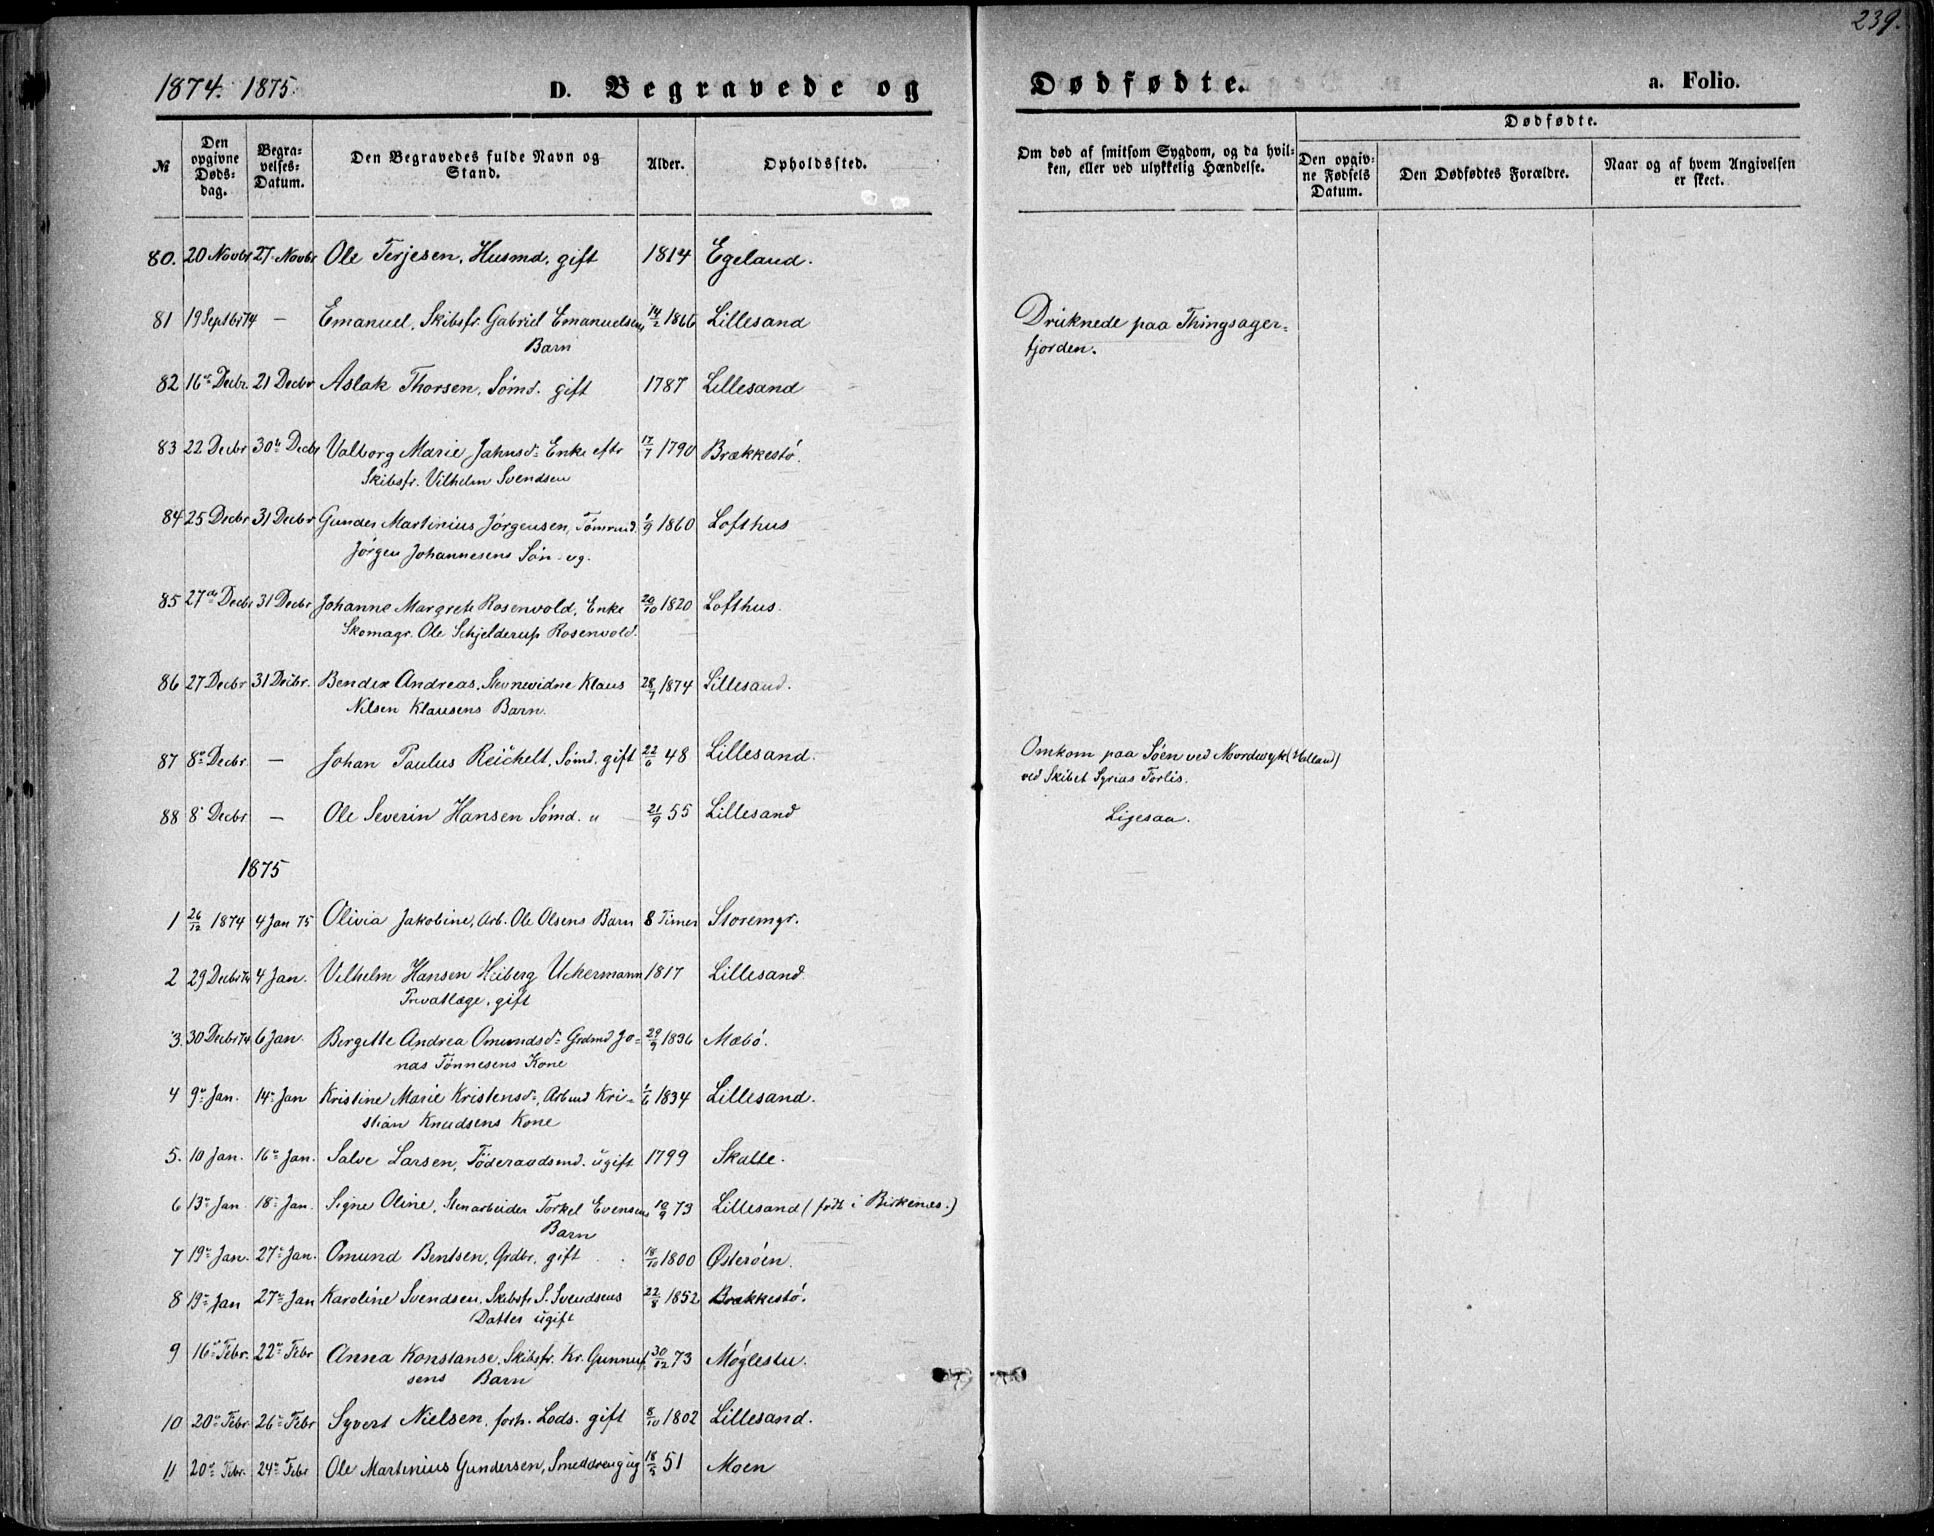 239.
1874. 1875.
D. Begravede og Dødfødte. a. Folio.
№
Den opgivne Døds-dag.
Begra-velses-Datum.
Den Begravedes fulde Navn og Stand.
Alder.
Opholdssted.
Om død af smitsom Sygdom, og da hvil-ken, eller ved ulykkelig Hændelse.
Dødfødte.
Den opgiv-ne Fødsels Datum.
Den Dødfødtes Forældre.
Naar og af hvem Angivelsen er skeet.
80. 20 Novbr 27 Novbr Ole Terjesen, Husmd, gift 1814 Egeland.
81 19 Septbr 74 — Emanuel, Skibsfr. Gabriel Emanuelsens 14/2 1866 Lillesand Druknede paa Thingsager=
Barn fjorden.
82 16de Decbr. 21 Decbr Aslak Thorsen, Sømd. gift 1787 Lillesand
83 22 Decbr 30te Decbr Valborg Marie Jahnsd= Enke eftr 17/7 1790 Brækkestø.
Skibsfr. Vilhelm Svendsen
84 25 Decbr 31 Decbr Gunder Martinius Jørgensen, Tømmd. 1/9 1860 Lofthus
Jørgen Johannesens Søn - ug.
85 27de Decbr 31 Decbr Johanne Margrete Rosenvold, Enke 20/10 1820 Lofthus.
Skomagr. Ole Schjelderup Rosenvold.
86 27 Decbr 31 Decbr. Bendix Andreas, Stevnevidne Klaus 28/7 1874 Lillesand.
Nilsen Klausens Barn.
87 8de Decbr. — Johan Paulus Reichelt, Sømd. gift 22/6 48 Lillesand. Omkom paa Søen ved Noordwyk (Holland)
ved Skibet Syrias Forlis.
88 8 Decbr — Ole Severin Hansen Sømd. " — 21/9 55 Lillesand Ligesaa.
1875
1 26/12 1874 4 Jan 75 Olivia Jakobine, Arb. Ole Olsens Barn 8 Timer Storemyr.
2 29 Decbr 74 4 Jan. Vilhelm Hansen Heiberg Uckermann 1817 Lillesand.
Privatlæge, gift
3. 30 Decbr 74 6 Jan. Birgitte Andrea Omundsd= Grdmd Jo= 29/9 1836 Mæbø.
nas Tønnesens Kone
4 9de Jan. 14de Jan Kristine Marie Kristensd=, Arbmd Kri= 1/6 1834 Lillesand.
stian Knudsens Kone
5. 10 Jan. 16de Jan. Salve Larsen, Føderaadsmd. ugift 1799 Skalle.
6 13de Jan 18de Jan. Signe Oline, Stenarbeider Torkel Evensens 10/9 73 Lillesand (født i Birkenes.)
Barn
7 19de Jan. 27de Jan. Omund Bentsen, Grdbr, gift 18/10 1800 Østerøen.
8 19de Jan 27de Jan Karoline Svendsen, Skibsfr S. Svendsens 22/8 1852 Brækkestø.
Datter ugift
9 16de Febr. 22de Febr Anna Konstanse, Skibsfr. Kr. Gunnuf= 30/12 73 Møglestu.
sens Barn
10 20de Febr. 26de Febr Syvert Nielsen, forh. Lods. gift 8/10 1802 Lillesand.
11 20de Febr. 24de Febr Ole Martinius Gundersen, Smeddreng ug 18/5 51 Moen